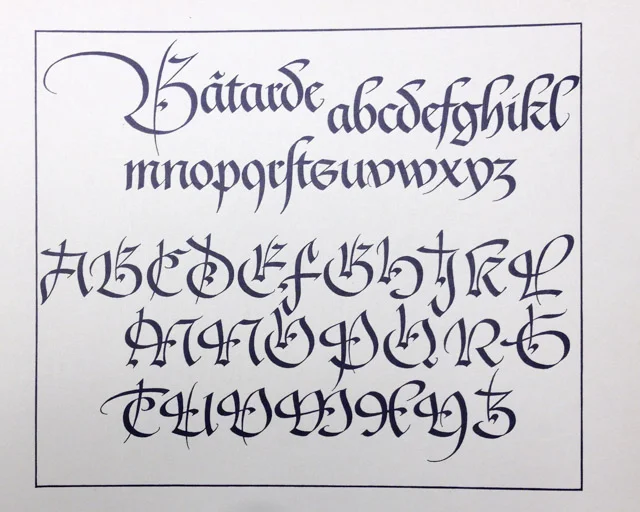 Bâtarde abcdefghikl
mnopqrſtsuvwxyz
ABCDEFGHJKL
MNOPQRS
TUVWXYZ